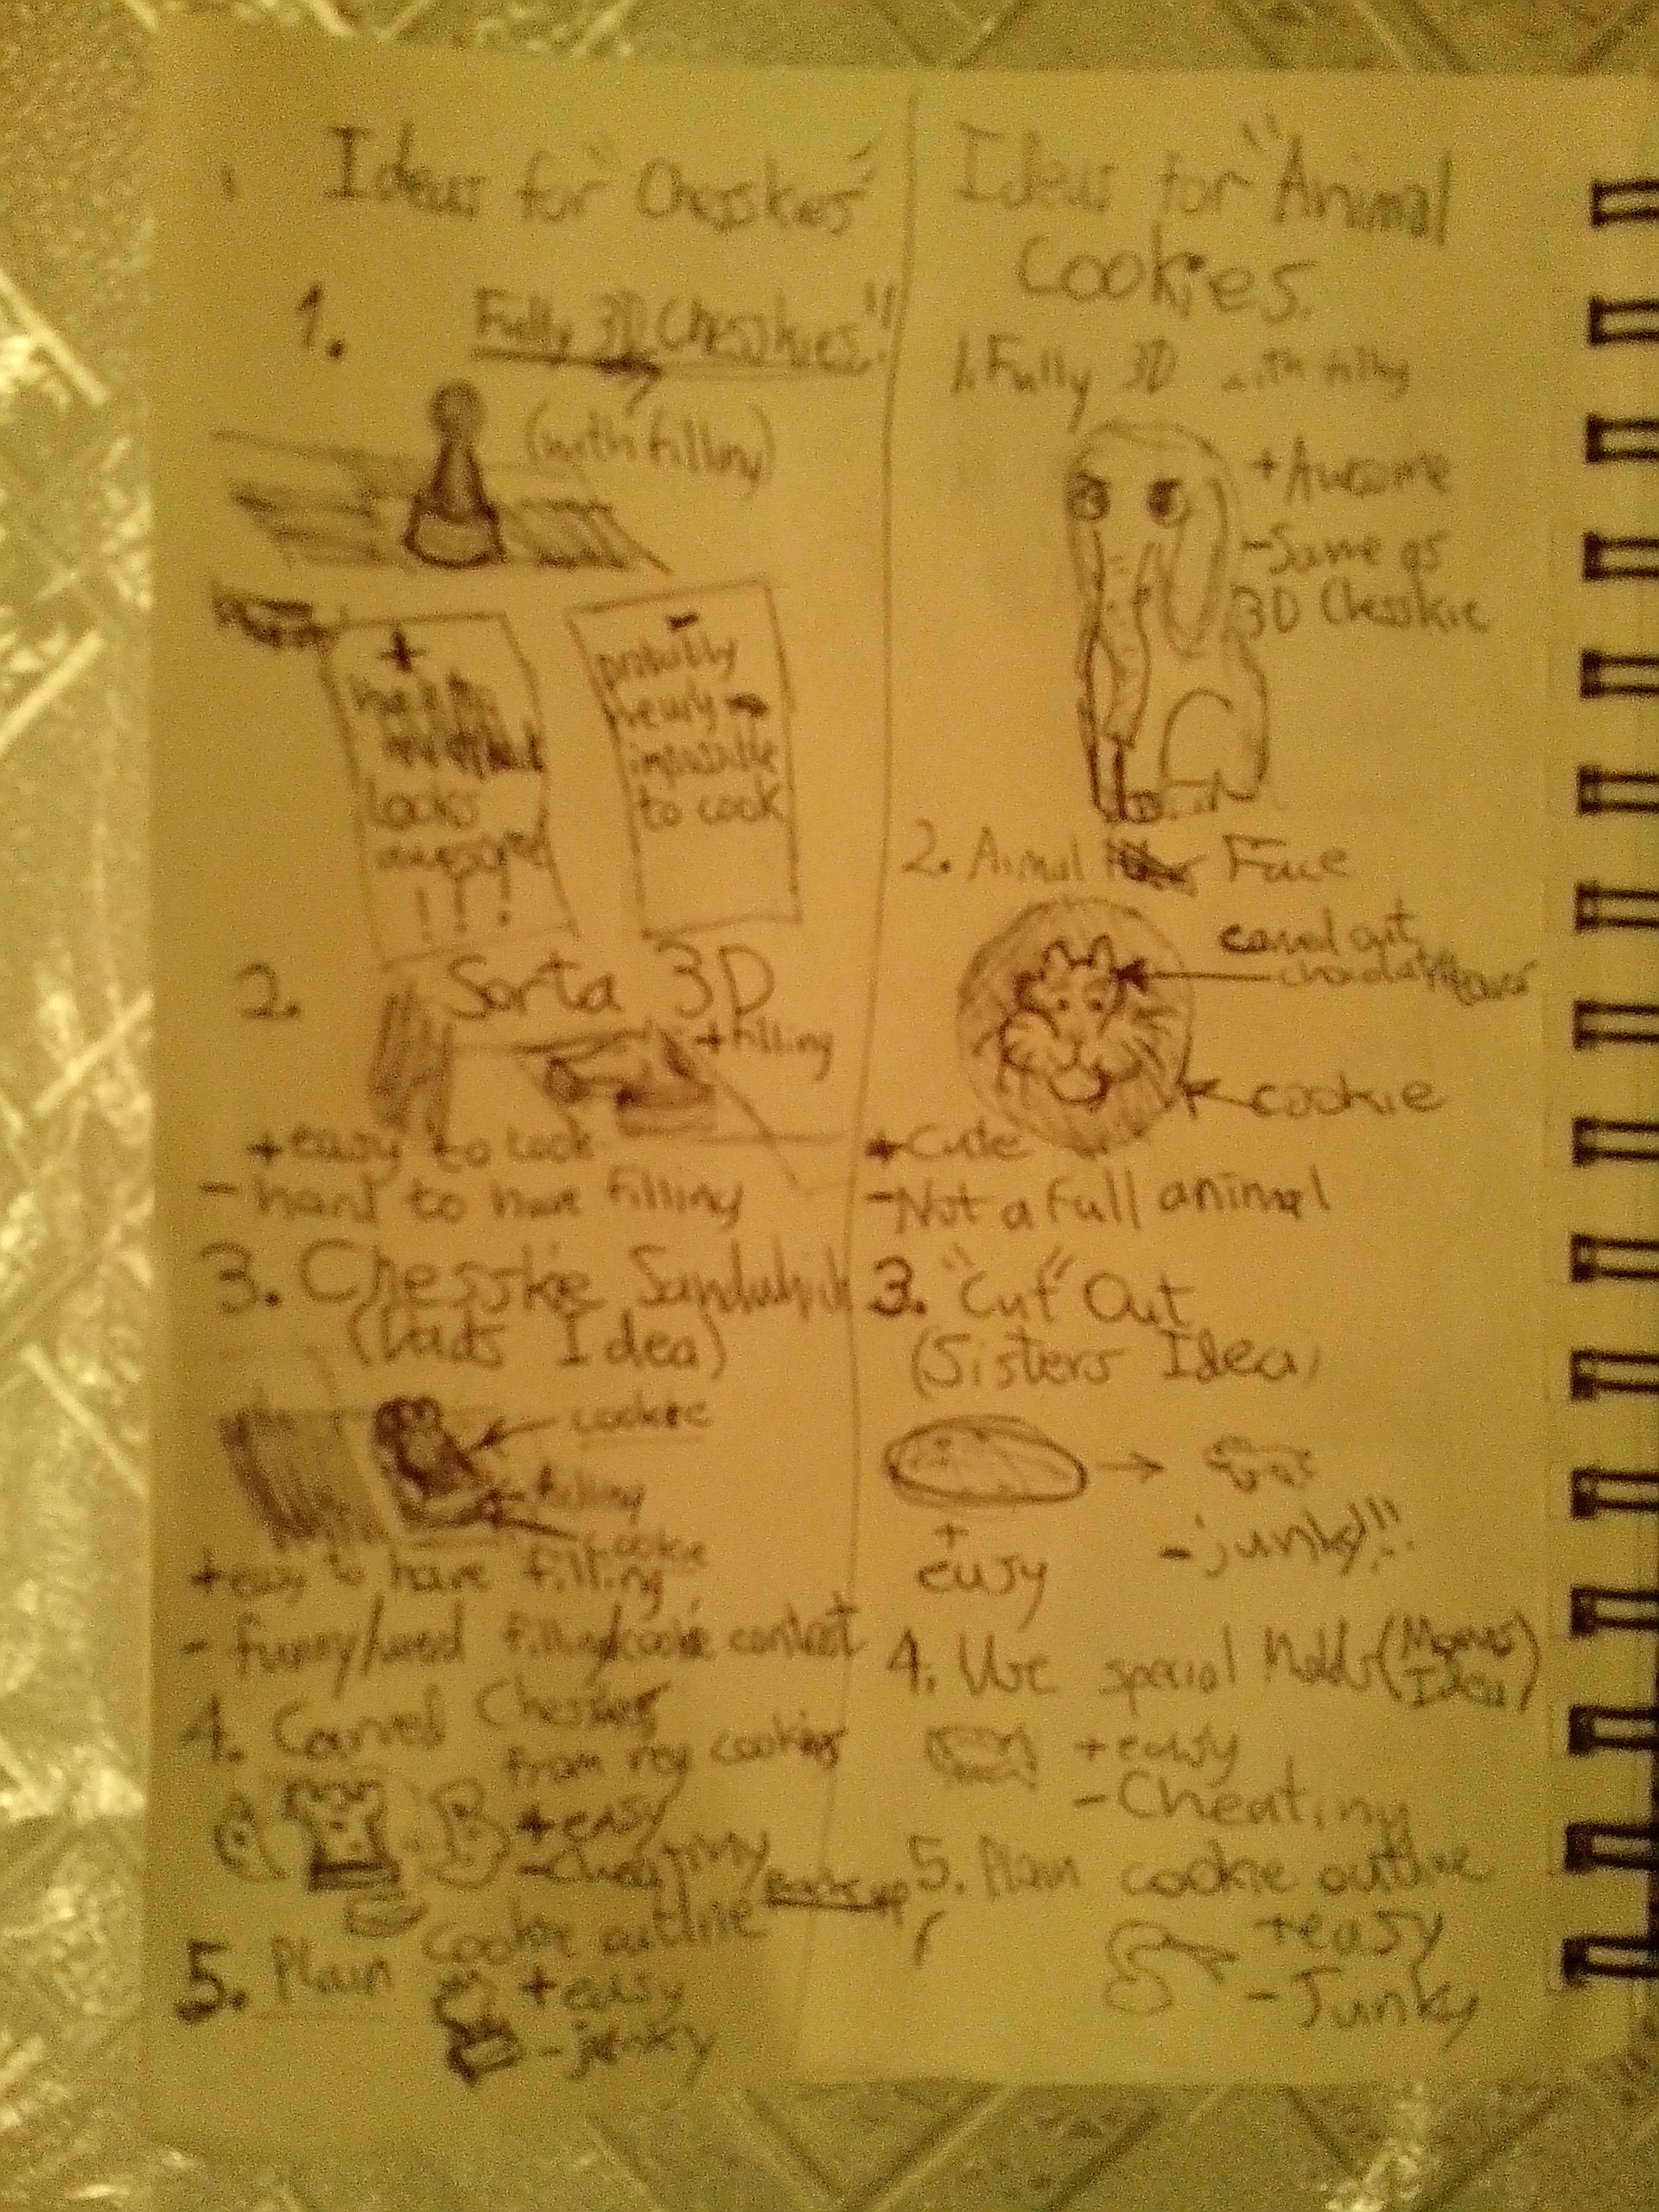 Ideas for "Chesskies"
1. Fully 3D Chesskies"!
(with filling)
+
looks
awesome
! ! !
-
probably
newly
impossible
to cook
2. Sorta 3D
+ filling
+ easy to cook
- hard to have filling
3. Chesskie Sandwhich
(Dads Idea)
cookie
filling
cookie
+ easy to have filling
- funny/weird filling/cookie contact
4. Carved Chesskies
from reg cookies
+ easy
- cheating
5. Plain cookie outline
+ easy
- jenky
Back up
Ideas for "Animal
Cookies.
1. Fully 3D with filling
+ Awesome
- Same as
3D Chesskie
2. Animal Face
carved out
cookie
+ Cute
- Not a full animal
3. "Cut" Out
(Sisters Idea)
+
easy
- junky!!!
4. Use special Molds (Moms
Idea)
+ easy
- Cheating
5. Plain cookie outline
+ easy
- Junky